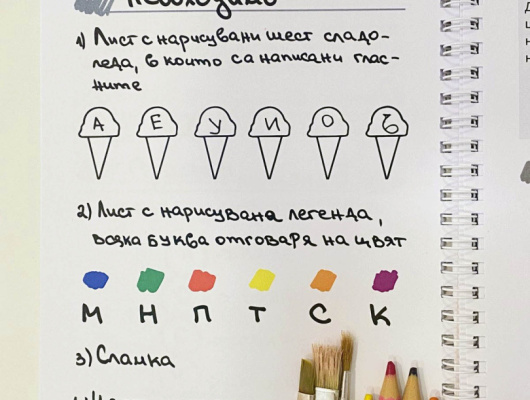 Необходимо
1) Лист с нарисувани шест сладо-
леда, в които са написани глас-
ните
А Е У И О Ъ
2) Лист с нарисувана легенда,
всяка буква отговаря на цвят
М Н П Т С К
3) Сламка